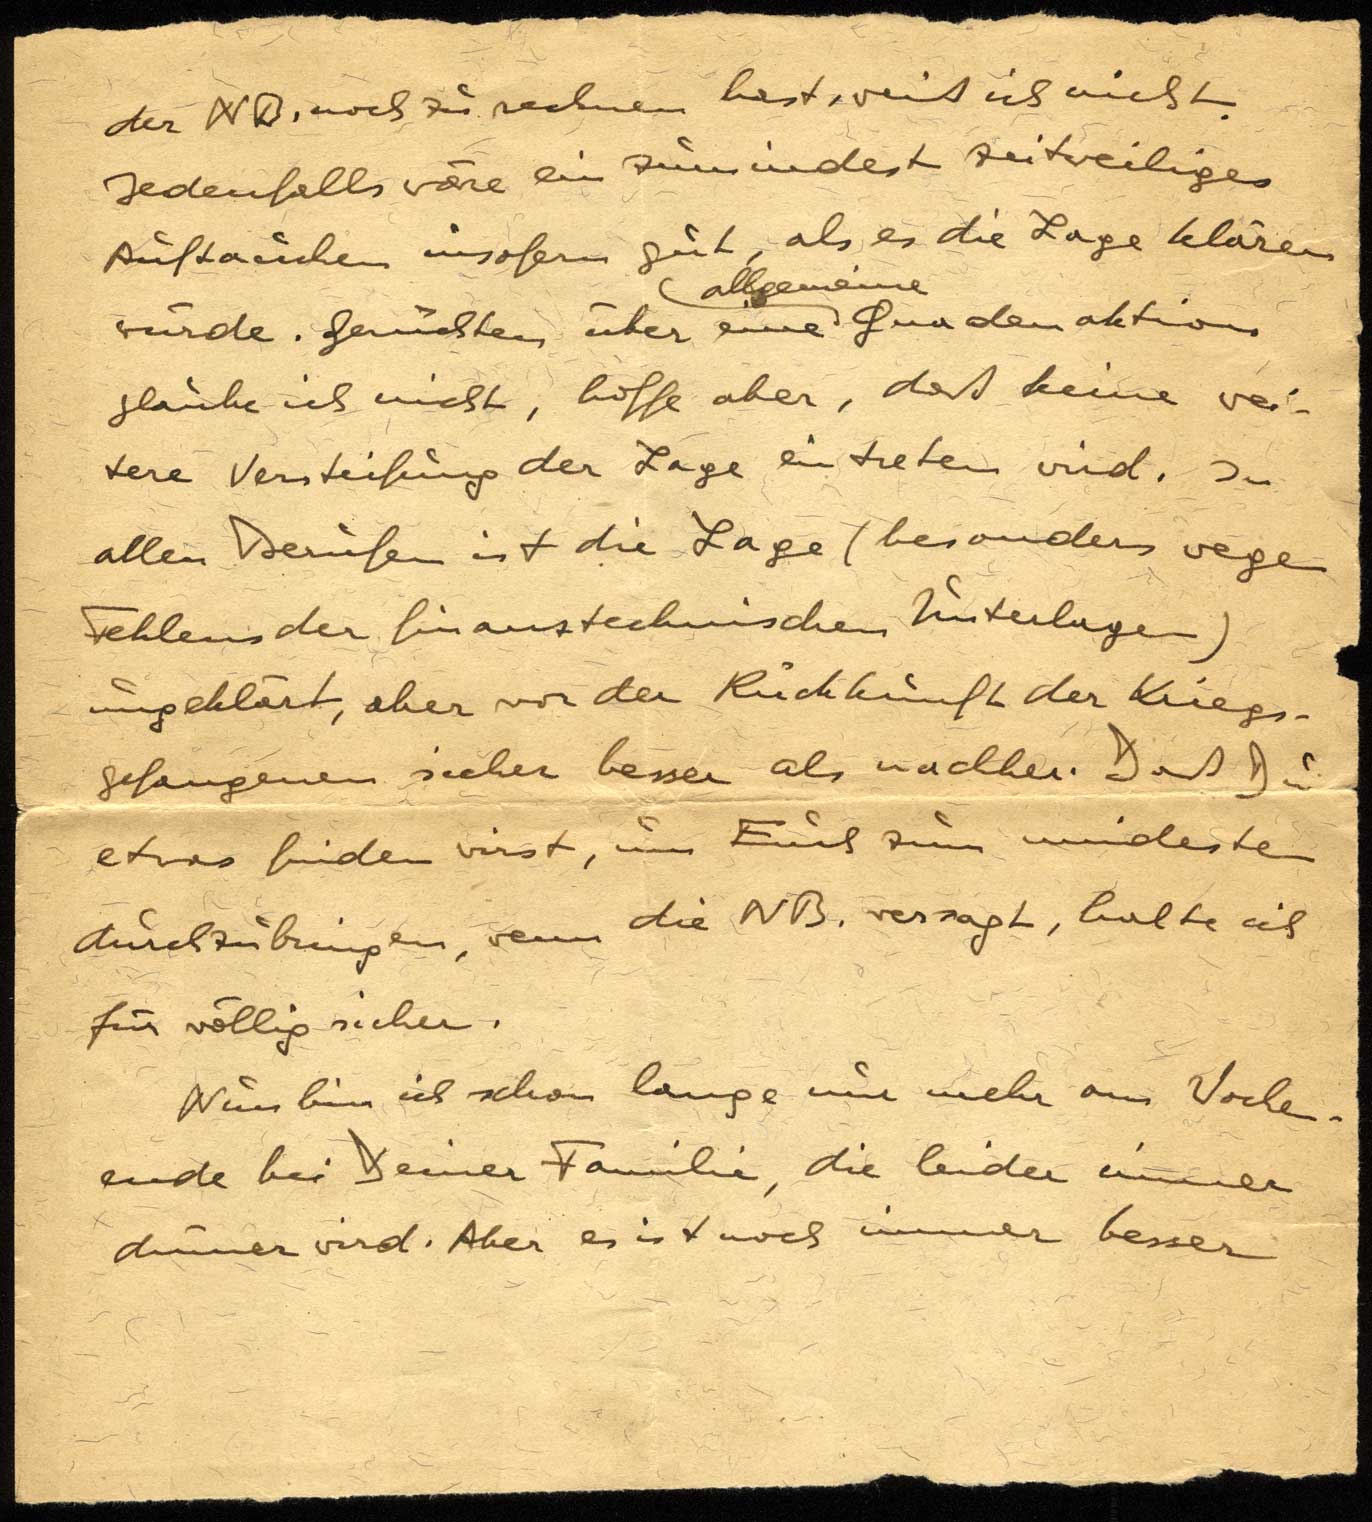 der NB. noch zu rechnen hast, weiß ich nicht.
Jedenfalls wäre ein zumindest zeitweiliges
Auftauchen insofern gut, als es die Lage klären
würde. Gerüchten über eine allgemeine Gnadenaktion
glaube ich nicht, hoffe aber, daß keine wei-
tere Versteifung der Lage eintreten wird. In
allen Berufen ist die Lage (besonders wegen
Fehlens der finanztechnischen Unterlagen)
ungeklärt, aber vor der Rückkunft der Kriegs-
gefangenen sicher besser als nachher. Daß Du
etwas finden wirst, um Euch zum mindesten
durchzubringen, wenn die NB. versagt, halte ich
für völlig sicher.
Nun bin ich schon lange nur mehr am Wochen-
ende bei Deiner Familie, die leider immer
dünner wird. Aber es ist noch immer besser